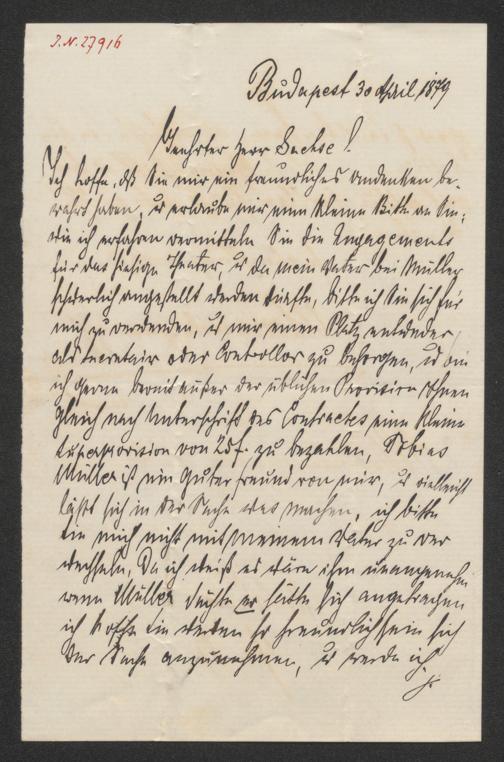 J.N. 27916
Budapest 30 April 1879
Geehrter Herr Sachse!
Ich hoffe, dß Sie mir ein freundliches Andenken be-
wahrt haben, u erlaube mir eine kleine Bitte an Sie;
wie ich erfahren vermitteln Sie die Engagements
für das hiesige Theater, u da mein Vater bei Müller
schwerlich angestellt werden dürfte, bitte ich Sie sich für
mich zu verwenden, u mir einen Platz entweder
als Secretair oder Controllor zu besorgen, u bin
ich gerne bereit außer der üblichen Provision Ihnen
gleich nach Unterschrift des Contractes eine kleine
Superprovision von 25 f. zu bezahlen, Tobias
Müller ist ein guter Freund von mir, u vielleicht
läßt sich in der Sache was machen, ich bitte
Sie mich nicht mit meinem Vater zu ver
wechseln, da ich weiß es wäre ihm unangenehm
wenn Müller dächte er hätte sich angetragen
ich hoffe Sie werden so freundlich sein sich
der Sache anzunehmen, u werde ich